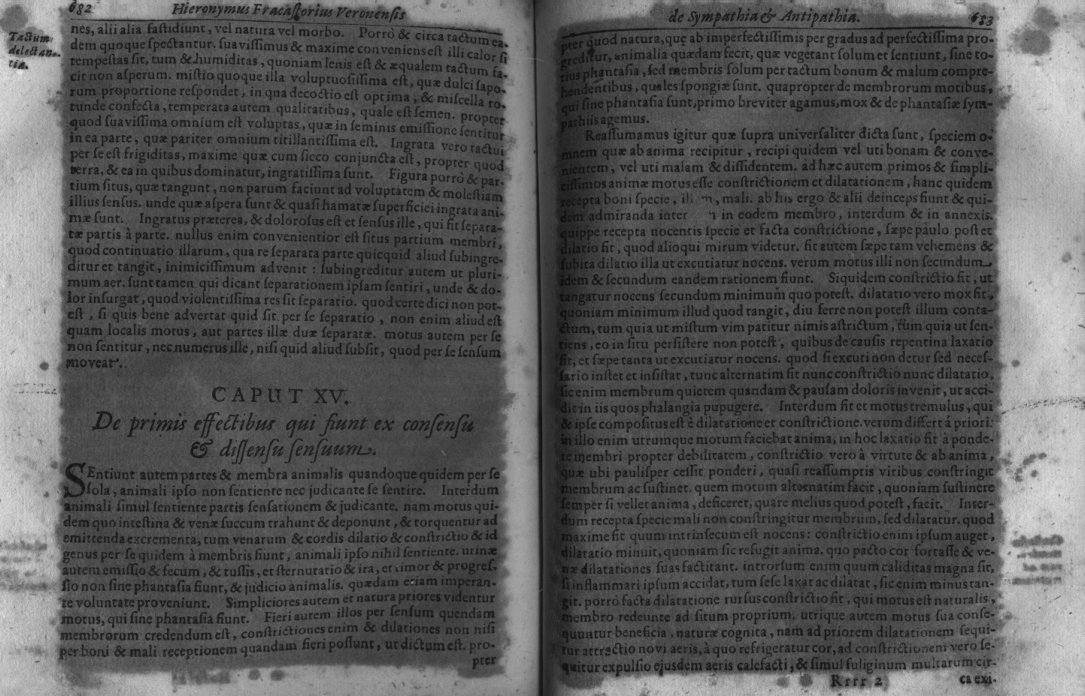 682 Hieronymus Fracastorius Veronensis
Tactum
delectan-
tia.
nes, alii alia fastidiunt, vel natura vel morbo. Porrò & circa tactum ea-
dem quoque spectantur. suavissimus & maxime conveniens est illi calor si
tempestas sit, tum & humiditas, quoniam lenis est & æqualem tactum fa-
cit non asperum. mistio quoque illa voluptuosissima est, quæ dulci sapo-
rum proportione respondet, in qua decoctio est optima, & miscella ro-
tunde confecta, temperata autem qualitatibus, quale est semen. propter
quod suavissima omnium est voluptas, quæ in seminis emissione sentitur
in ea parte, quæ pariter omnium titillantissima est. Ingrata vero tactui
per se est frigiditas, maxime quæ cum sicco conjuncta est, propter quod
terra, & ea in quibus dominatur, ingratissima sunt. Figura porrò & par-
tium situs, quæ tangunt, non parum faciunt ad voluptatem & molestiam
illius sensus. unde quæ aspera sunt & quasi hamatæ superficiei ingrata ani-
mæ sunt. Ingratus præterea, & dolorosus est et sensus ille, qui fit separa-
tæ partis à parte. nullus enim convenientior est situs partium membri,
quod continuatio illarum, qua re separata parte quicquid aliud subingre-
ditur et tangit, inimicissimum advenit: subingreditur autem ut pluri-
mum aer. sunt tamen qui dicant separationem ipsam sentiri, unde & do-
lor insurgat, quod violentissima res sit separatio. quod certe dici non pot-
est, si quis bene advertat quid sit per se separatio, non enim aliud est
quam localis motus, aut partes illæ duæ separatæ. motus autem per se
non sentitur, nec numerus ille, nisi quid aliud subsit, quod per se sensum
moveat.
CAPUT XV.
De primis effectibus qui fiunt ex consensu
& dissensu sensuum.
SEntiunt autem partes & membra animalis quandoque quidem per se
sola, animali ipso non sentiente nec judicante se sentire. Interdum
animali simul sentiente partis sensationem & judicante. nam motus qui-
dem quo intestina & venæ succum trahunt & deponunt, & torquentur ad
emittenda excrementa, tum venarum & cordis dilatio & constrictio & id
genus per se quidem à membris fiunt, animali ipso nihil sentiente. urinæ
autem emissio & fecum, & tussis, et sternutatio & ira, et timor & progres-
sio non sine phantasia fiunt, & judicio animalis. quædam etiam imperan-
te voluntate proveniunt. Simpliciores autem et natura priores videntur
motus, qui sine phantasia fiunt. Fieri autem illos per sensum quendam
membrorum credendum est, constrictiones enim & dilationes non nisi
per boni & mali receptionem quandam fieri possunt, ut dictum est. pro-
pter
de Sympathia & Antipathia. 683
pter quod natura, quę ab imperfectissimis per gradus ad perfectissima pro-
greditur, animalia quædam fecit, quæ vegetant solum et sentiunt, sine to-
tius phantasia, sed membris solum per tactum bonum & malum compre-
hendentibus, quales spongiæ sunt. quapropter de membrorum motibus,
qui sine phantasia sunt, primo breviter agamus, mox & de phantasiæ sym-
pathiis agemus.
Reassumamus igitur quæ supra universaliter dicta sunt, speciem o-
mnem quæ ab anima recipitur, recipi quidem vel uti bonam & conve-
nientem, vel uti malam & dissidentem. ad hæc autem primos & simpli-
cissimos animæ motus esse constrictionem et dilatationem, hanc quidem
recepta boni specie, mali. ab his ergo & alii deinceps fiunt & qui-
dem admiranda in eodem membro, interdum & in annexis.
quippe recepta nocentis specie et facta constrictione, sæpe paulo post et
dilatio fit, quod alioqui mirum videtur. fit autem sæpe tam vehemens &
subita dilatio illa ut excutiatur nocens. verum motus illi non secundum
idem & secundum eandem rationem fiunt. Siquidem constrictio fit, ut
tangatur nocens secundum minimum quo potest. dilatatio vero mox fit,
quoniam minimum illud quod tangit, diu ferre non potest illum conta-
ctum, tum quia ut mistum vim patitur nimis astrictum, tum quia ut sen-
tiens, eo in situ persistere non potest, quibus de causis repentina laxatio
fit, et sæpe tanta ut excutiatur nocens. quod si excuti non detur sed neces-
sario instet et insistat, tunc alternatim fit nunc constrictio nunc dilatatio,
sic enim membrum quietem quandam & pausam doloris invenit, ut acci-
dit in iis quos phalangia pupugere. Interdum fit et motus tremulus, qui
& ipse compositus est è dilatatione et constrictione. verum differt à priori.
in illo enim utrumque motum faciebat anima, in hoc laxatio fit à ponde-
re membri propter debilitatem, constrictio verò à virtute & ab anima,
quæ ubi paulisper cessit ponderi, quasi reassumptis viribus constringit
membrum ac sustinet. quem motum alternatim facit, quoniam sustinere
semper si vellet anima, deficeret, quare melius quod potest, facit. Inter-
dum recepta specie mali non constringitur membrum, sed dilatatur. quod
maxime fit quum intrinsecum est nocens: constrictio enim ipsum auget,
dilatatio minuit, quoniam sic refugit anima. quo pacto cor fortasse & ve-
næ dilatationes suas factitant. introrsum enim quum caliditas magna sit,
si inflammari ipsum accidat, tum sese laxat ac dilatat, sic enim minus tan-
git. porrò facta dilatatione rursus constrictio fit, qui motus est naturalis,
membro redeunte ad situm proprium. utrique autem motus sua conse-
quuntur beneficia, naturæ cognita, nam ad priorem dilatationem sequi-
tur attractio novi aeris, à quo refrigeratur cor, ad constrictionem vero se-
quitur expulsio ejusdem aeris calefacti, & simul fuliginum multarum cir-
Rrrr 2 ca exi-